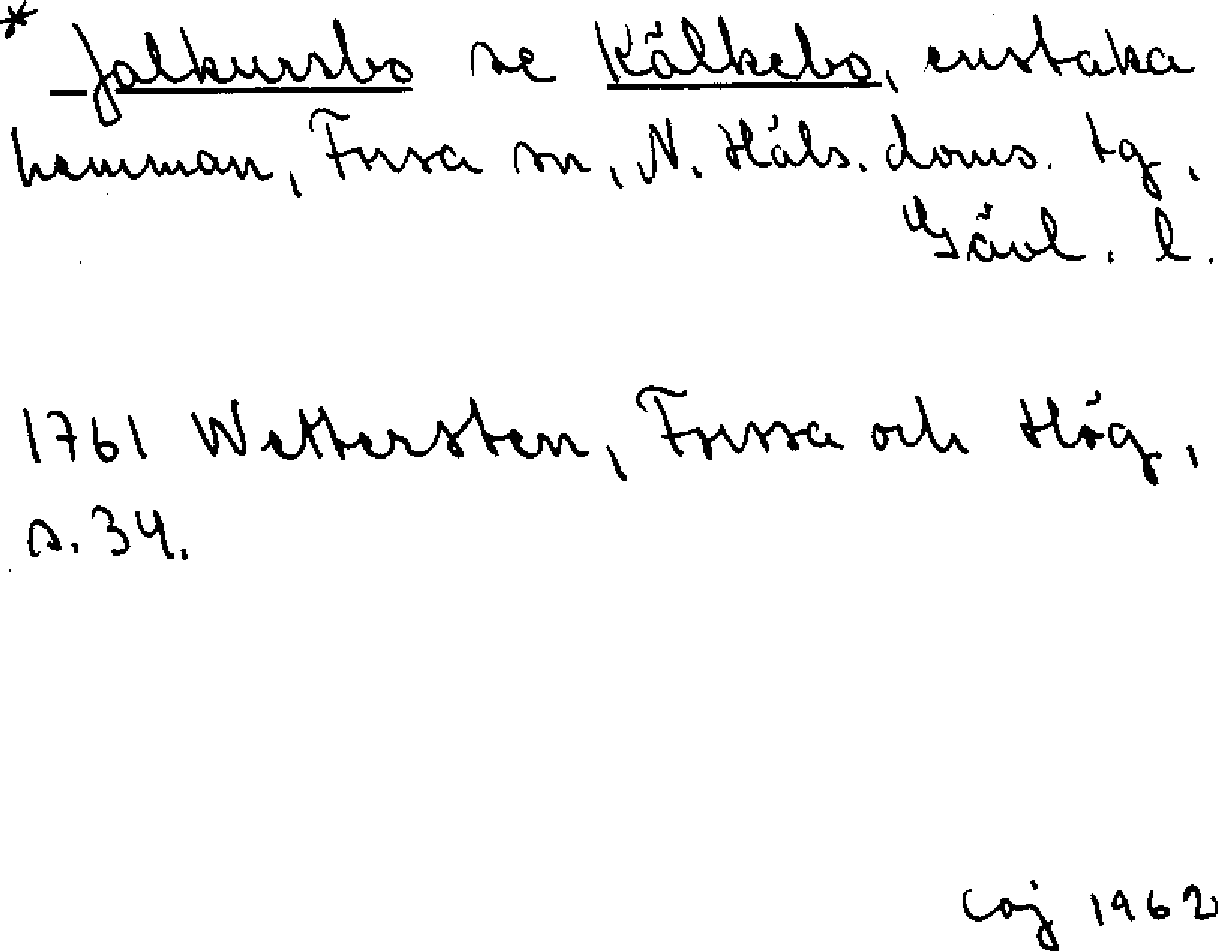 * Jalkursbo se Kälkebo, enstaka
hemman, Forsa sn, N. Häls. doms. tg,
Gävl. l.
1761 Wettersten, Forssa och Hög,
s. 34.
CGJ 1962